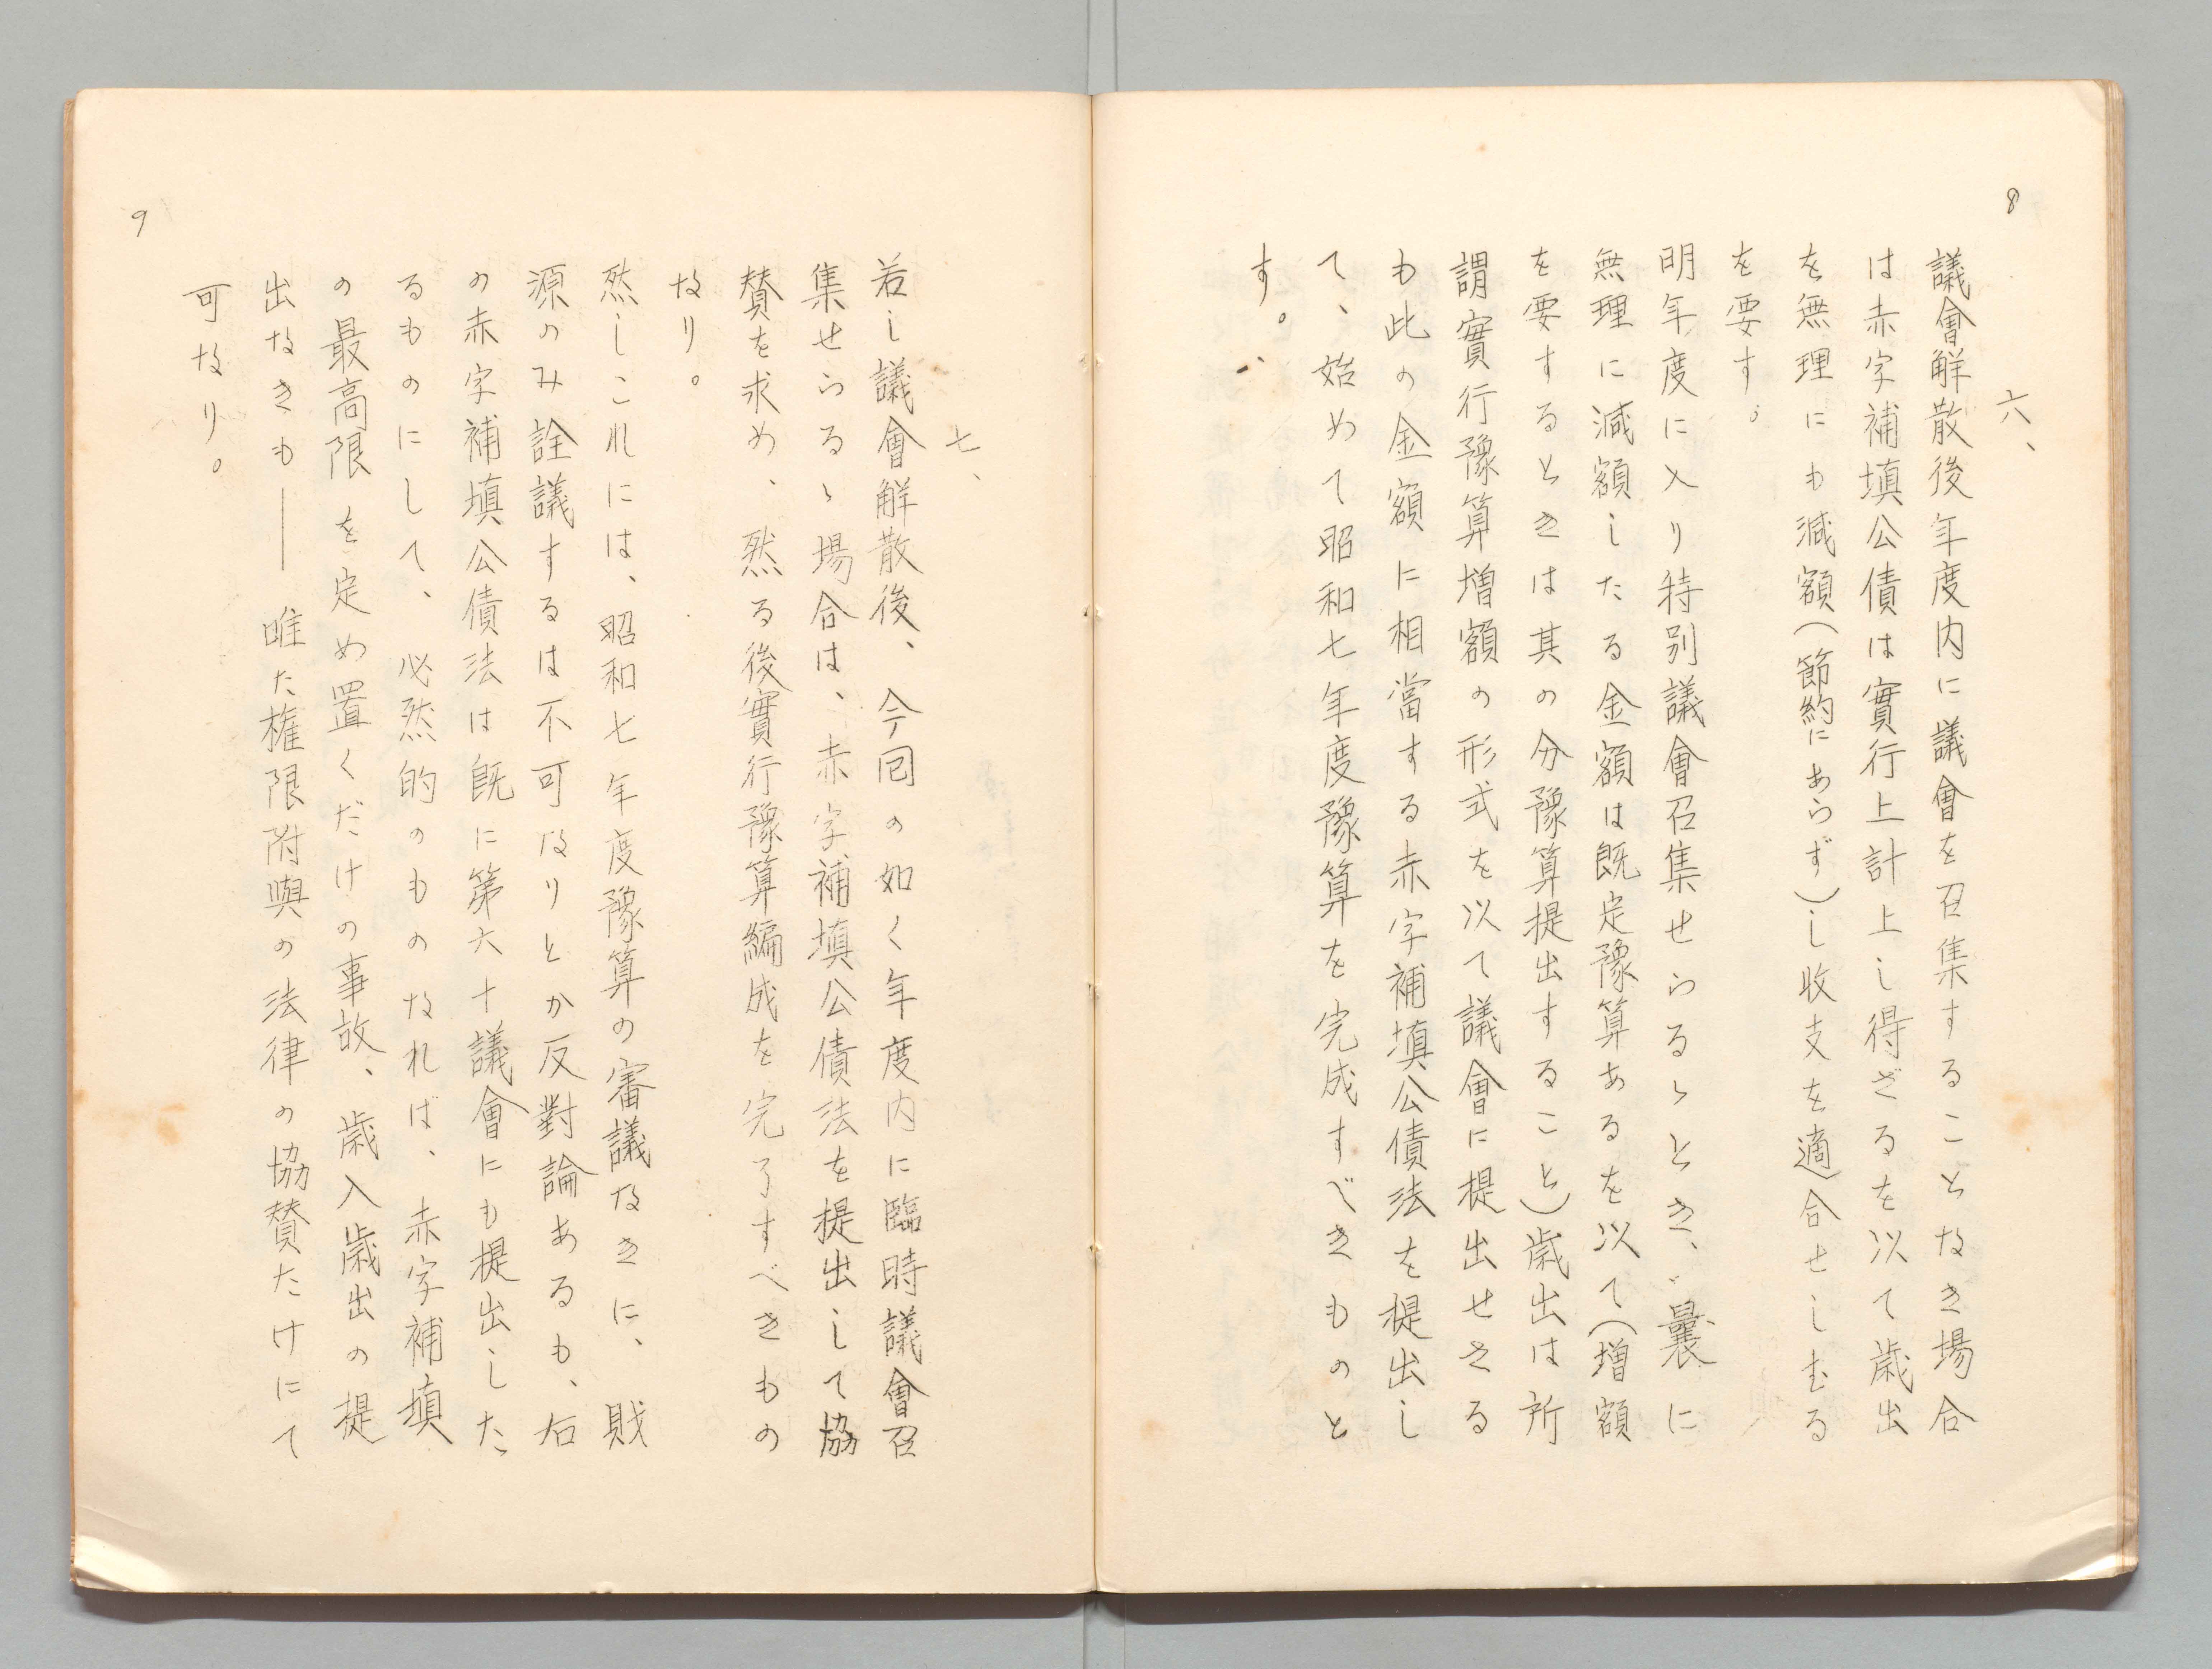 8
六、
議會解散後年度内に議會を召集することなき場合
は赤字補填公債は實行上計上し得ざるを以て歳出
を無理にも減額（節約にあらず）し收支を適合せしむる
を要す。
明年度に入り特別議會召集せらるゝとき、曩に
無理に減額したる金額は既定豫算あるを以て（増額
を要するときは其の分豫算提出すること）歳出は所
謂實行豫算増額の形式を以て議會に提出せざる
も此の金額に相當する赤字補填公債法を提出し
て、始めて昭和七年度豫算を完成すべきものと
す。
七、
若し議會解散後、今囘の如く年度内に臨時議會召
集せらるゝ場合は、赤字補填公債法を提出して協
賛を求め、然る後實行豫算編成を完了すべきもの
なり。
然しこれには、昭和七年度豫算の審議なきに、財
源のみ詮議するは不可なりとか反對論あるも、右
の赤字補填公債法は既に第六十議會にも提出した
るものにして、必然的のものなれば、赤字補填
の最高限を定め置くだけの事故、歳入歳出の提
出なきも――唯た權限附與の法律の協賛たけにて
可なり。
9